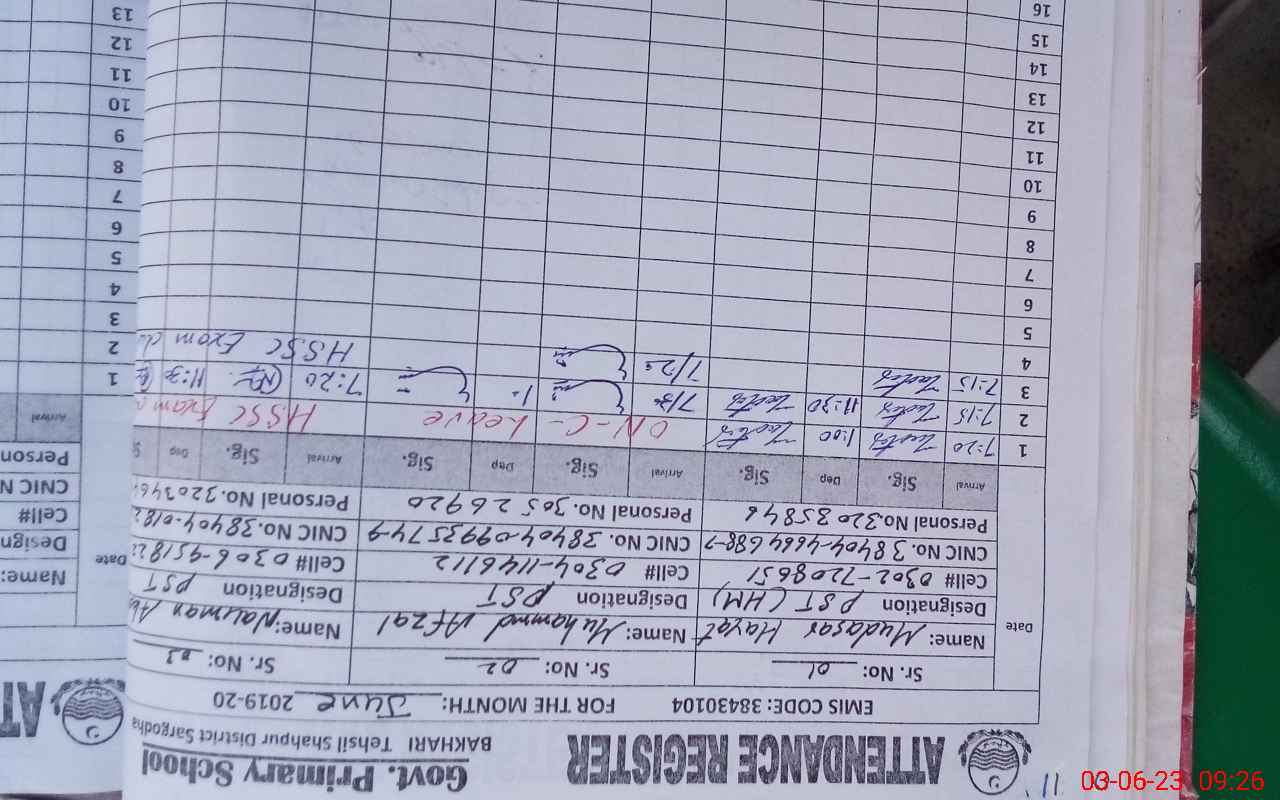 ATTENDANCE REGISTER
Govt. Primary School
BAKHARI Tehsil Shahpur District Sargodha
EMIS CODE: 38430104 FOR THE MONTH: June 2019-20
Sr. No: 01 Sr. No: 02 Sr. No: 03
Date Name: Mudasar Hayat Name: Muhammd Afzal Name: Nauman
Designation PST (HM) Designation PST Designation PST
Cell# 0302-7208651 Cell# 0304-1146112 Cell# 0306-45182
CNIC No. 38404-4664688-7 CNIC No. 38404-0993574-9 CNIC No. 38404-0182
Personal No. 32035846 Personal No. 30526920 Personal No. 3203464
Arrival Sig. Dep Sig. Arrival Sig. Dep Sig. Arrival Sig. Dep
1 7:20 1:00 ON - C - Leave HSSC Exam
2 7:15 11:30 7:20 11:30
3 7:15 HSSC Exam
4
5
6
7
8
9
10
11
12
13
14
15
16
AT
Date Name:
Design
Cell#
CNIC N
Person
Arrival
1
2
3
4
5
6
7
8
9
10
11
12
13
11
03-06-23 09:26